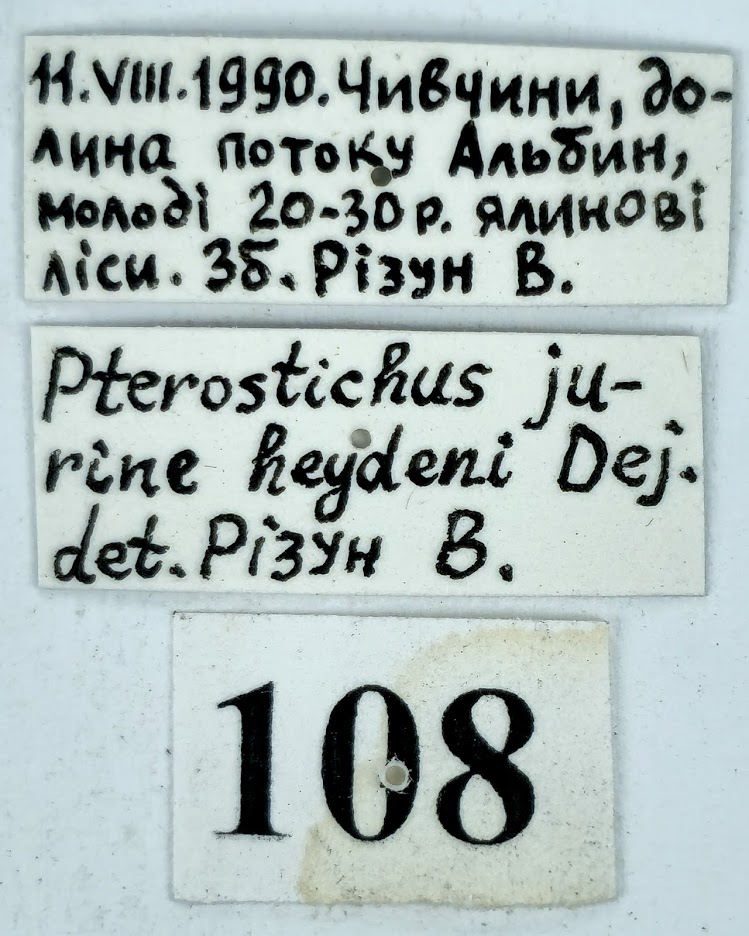 11.VIII.1990. Чивчини, до-
лина потоку Альбин,
молоді 20-30 р. ялинові
ліси. Зб. Різун В.
Pterostichus ju-
rine heydeni Dej.
det. Різун В.
108